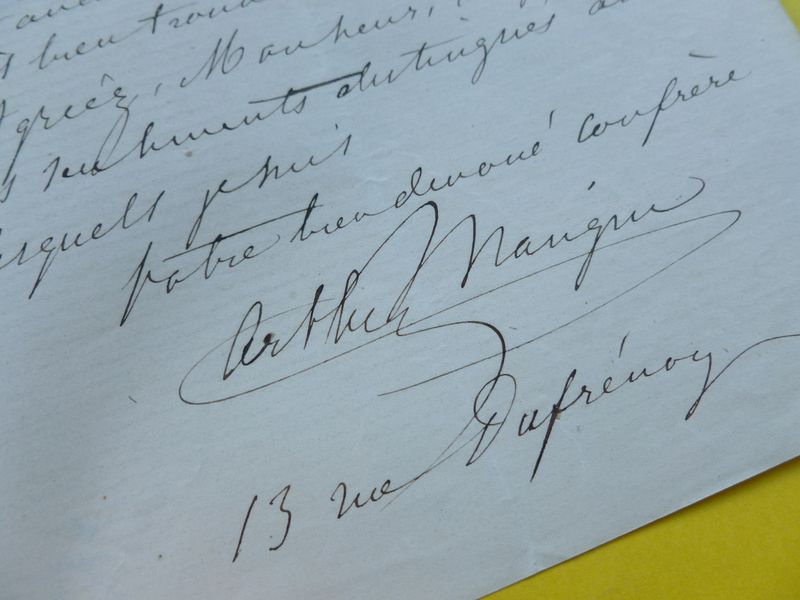 bien
Agréez, Monsieur,
sentiments distingués
lesquels je suis
Votre bien dévoué confrère
Arthur Mangin
13 rue Dufrénoy